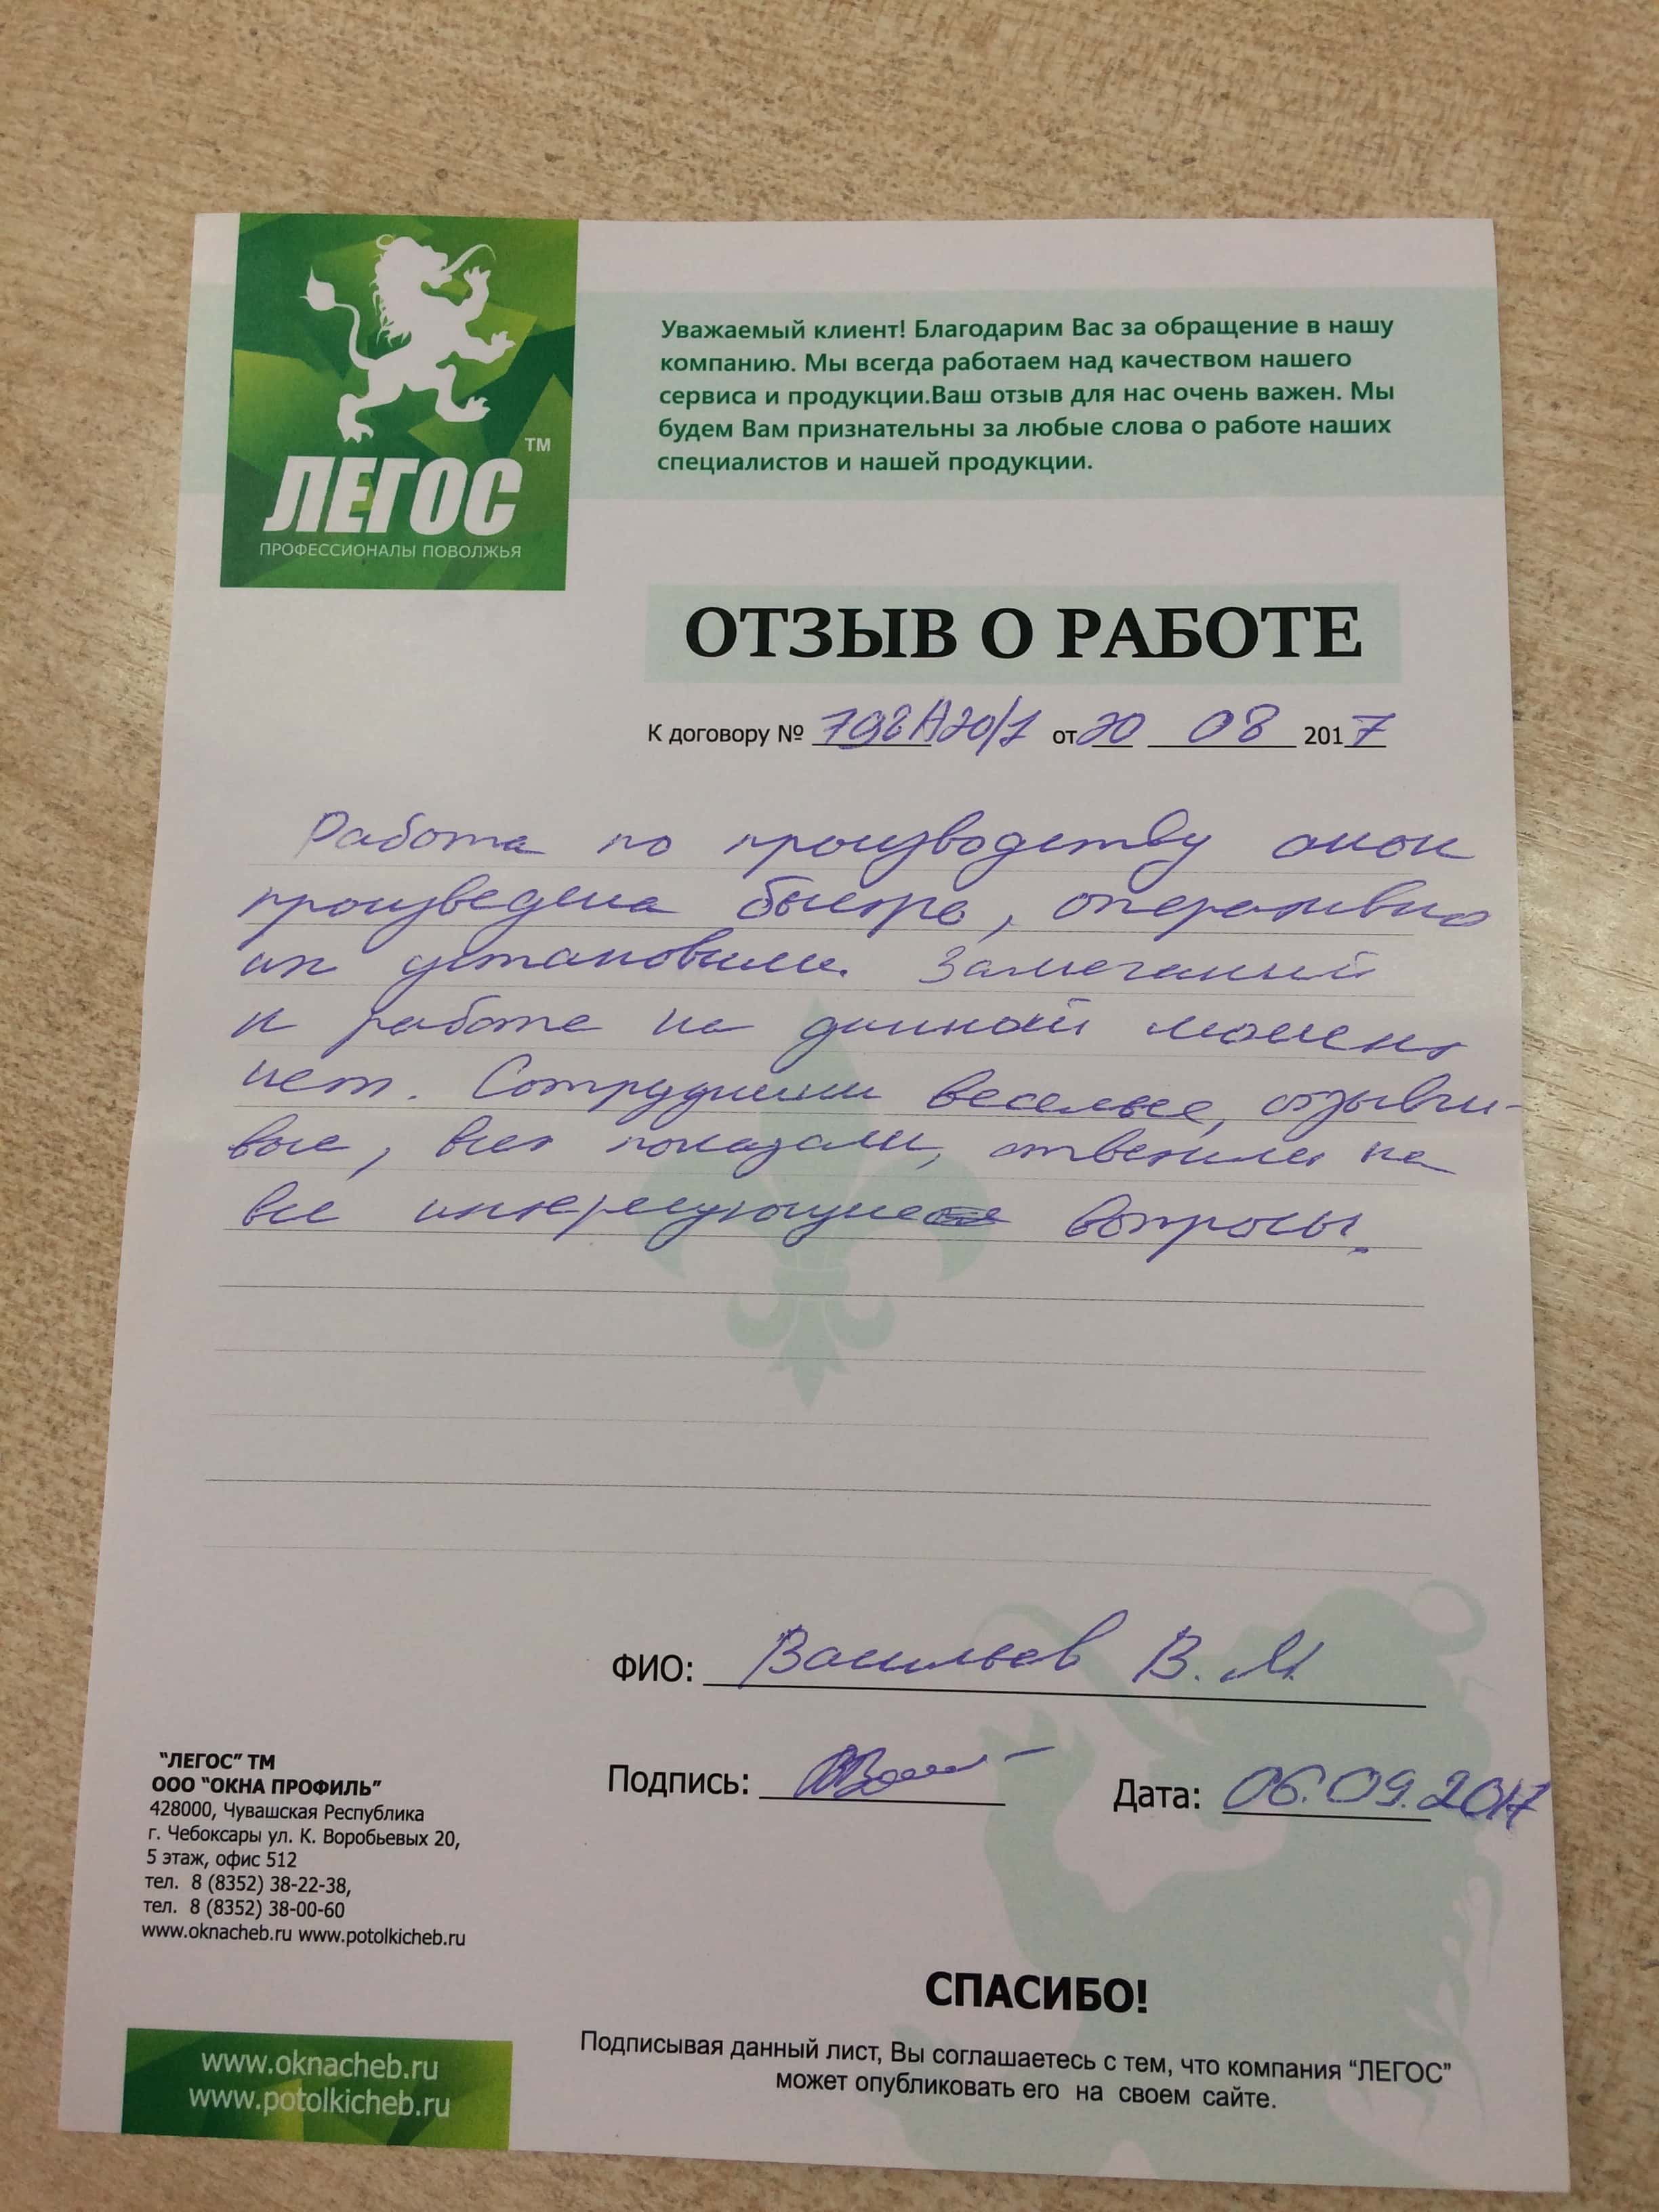 ЛЕГОС
TM
ПРОФЕССИОНАЛЫ ПОВОЛЖЬЯ
Уважаемый клиент! Благодарим Вас за обращение в нашу
компанию. Мы всегда работаем над качеством нашего
сервиса и продукции.Ваш отзыв для нас очень важен. Мы
будем Вам признательны за любые слова о работе наших
специалистов и нашей продукции.
ОТЗЫВ О РАБОТЕ
К договору № 798А20/1 от 20 08 2017
Работа по производству окон
произведена быстро, оперативно
их установили. Замечаний
к работе на данный момент
нет. Сотрудники веселые, отзывчи-
вые, все показали, ответили на
все интересующие вопросы.
ФИО: Васильев В. М.
Подпись:
Дата: 06.09.2017
"ЛЕГОС" ТМ
ООО "ОКНА ПРОФИЛЬ"
428000, Чувашская Республика
г. Чебоксары ул. К. Воробьевых 20,
5 этаж, офис 512
тел. 8 (8352) 38-22-38,
тел. 8 (8352) 38-00-60
www.oknacheb.ru www.potolkicheb.ru
СПАСИБО!
Подписывая данный лист, Вы соглашаетесь с тем, что компания "ЛЕГОС"
может опубликовать его на своем сайте.
www.oknacheb.ru
www.potolkicheb.ru